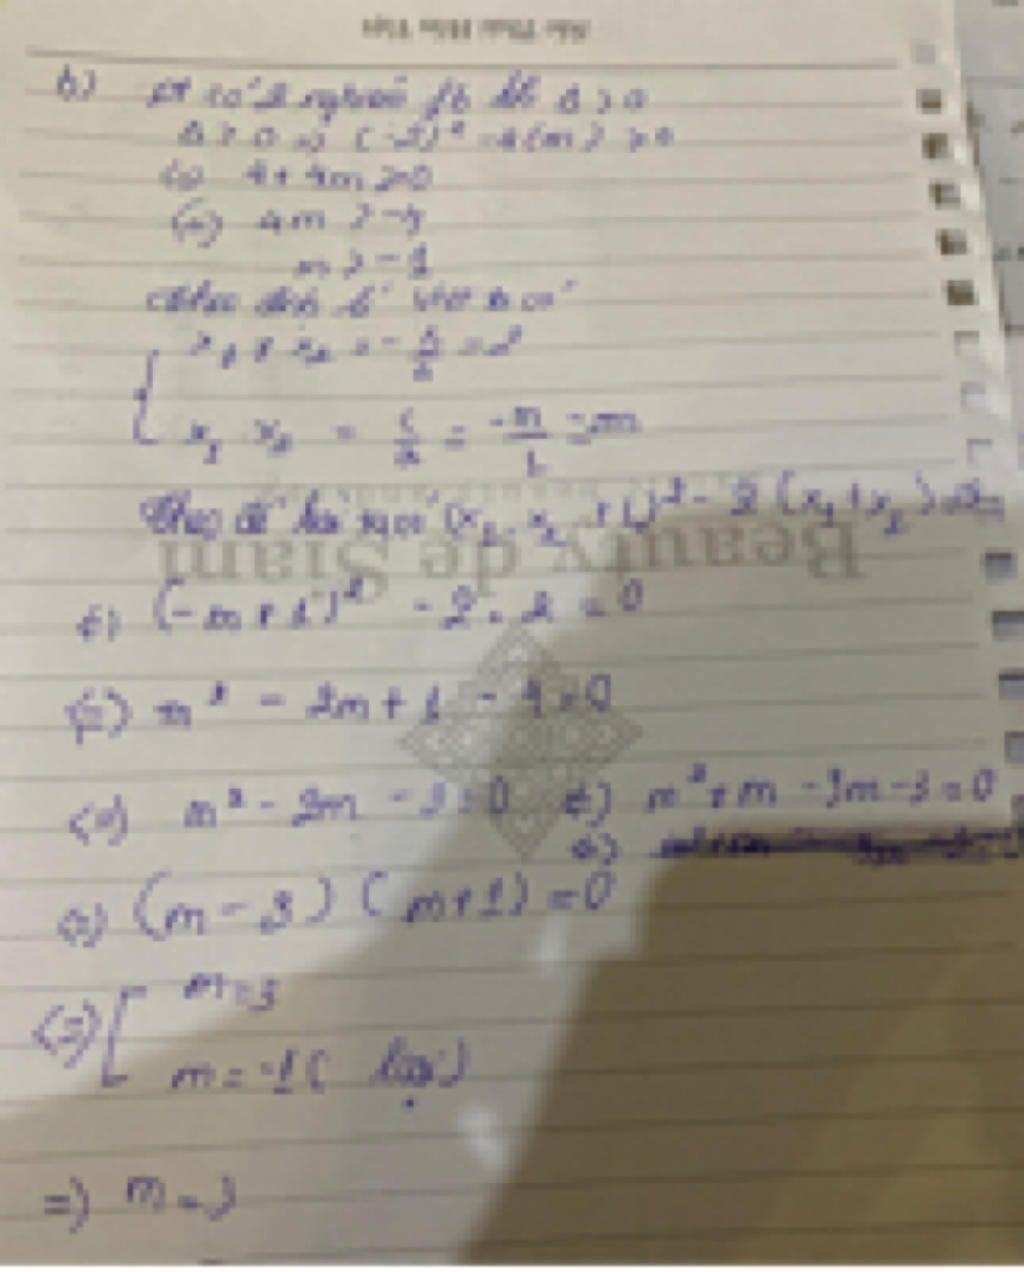 b) pt có 2 nghiệm pb khi Δ > 0
Δ > 0 => (-2)² - 4(m) > 0
(=) 4 + 4m > 0
(=) 4m > -4
m > -1
Theo định lí Viét ta có
x₁ + x₂ = -b/a = 2
x₁ x₂ = c/a = -m/1 = -m
Theo đề bài ta có (x₁ . x₂ + 1)² - 2 (x₁ + x₂) =
Beauty de Siam
(=) (-m + 1)² - 2 . 2 = 0
(=) m² - 2m + 1 - 4 = 0
(=) m² - 2m - 3 = 0 (=) m² + m - 3m - 3 = 0
(=)
(=) (m - 3) (m + 1) = 0
(=) [ m = 3
m = -1 ( loại )
=) m = 3